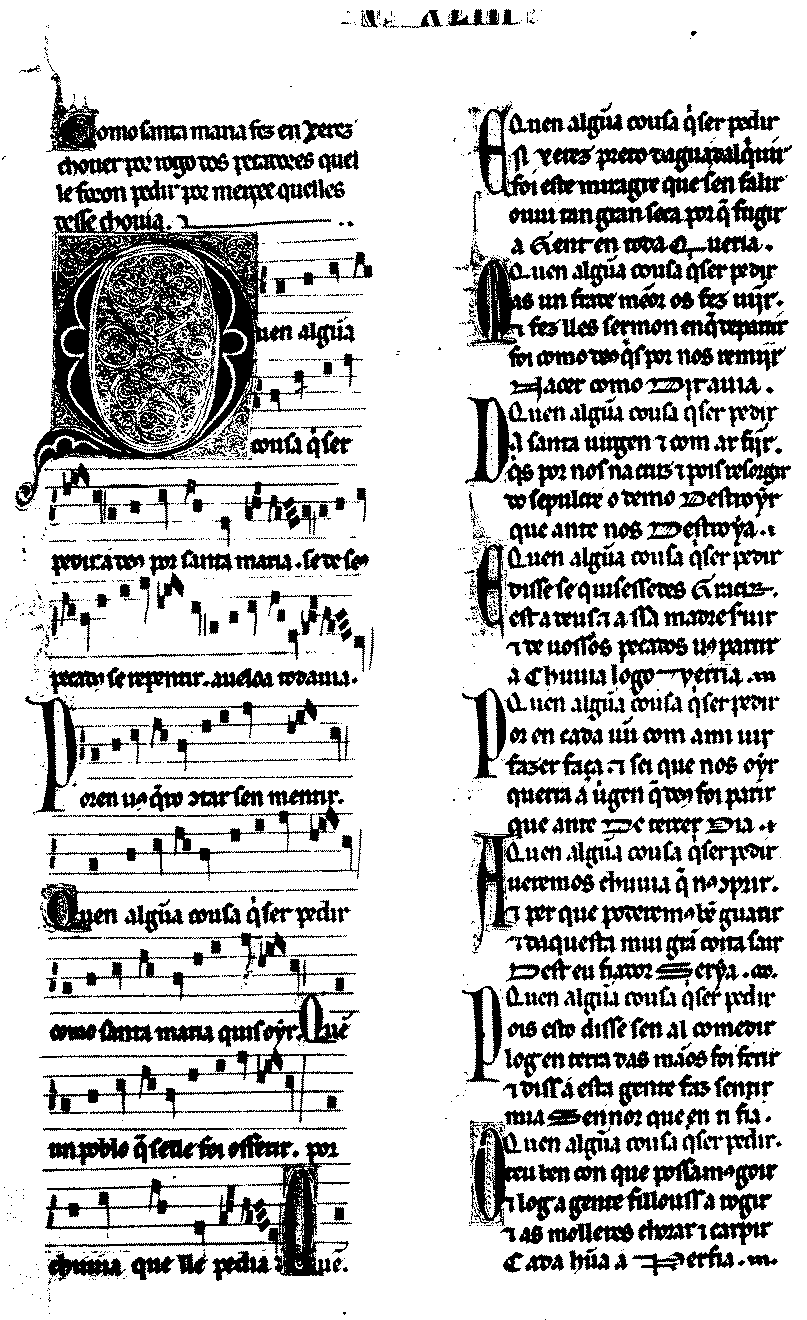 Como santa maria fez en Xerez
chouer por rogo dos pecadores quel
le foron pedir por merçee quelles
desse chouia.
Quen algũa
cousa q̇ ser
pedir a deus por santa maria. se de seus
pecados se repentir. auela a todauia.
Poren uos q̇ro ↄtar sen mentir.
Quen algũa cousa q̇ ser pedir
como santa maria quis oyr. Quẽ
un poblo q̃ selle foi offerir. por
chuuia que lle pedia Quẽ.
Quen algũa cousa q̇ ser pedir
En Xerez preto daguadalq̇uir
foi este miragre que sen falir
ouui tan gran seca por q̃ fugir
a Gent en toda Queria.
Quen algũa cousa q̇ ser pedir
Mas un frade mẽor os fez uĩjr.
⁊ fez lles sermon en q̃ departir
foi como deus q̇s por nos remĩjr
Nacer como Dizauia.
Quen algũa cousa q̇ ser pedir
Da santa uirgen ⁊ com ar fĩjr.
q̇s por nos na cruz ⁊ pois resorgir
do sepulcre o demo Destroyr
que ante nos Destroya.
Quen algũa cousa q̇ ser pedir
E disse se quisessedes Gracir
est a deus. ⁊ a ssa madre seruir
⁊ de uossos pecados uos partir
a Chuuia logo uerria.
Quen algũa cousa q̇ ser pedir
Por en cada un com ami uĩjr
fazer faça. ⁊ sei que nos oyr
querra a uirgen q̃ deus foi parir
que ante De tercer Dia.
Quen algũa cousa q̇ ser pedir
Aueremos chuuia q̃ nos ↄprir.
⁊ per que poderemos bẽ guarir
⁊ daquesta mui grã coita sair
Dest eu fiador Serya.
Quen algũa cousa q̇ ser pedir
Pois esto disse sen al comedir
log en terra das mãos foi ferir
⁊ diss a esta gente faz sentir
mia Sennor que en ti fia.
Quen algũa cousa q̇ ser pedir.
O teu ben con que possamos goir
⁊ log a gente fillouss a rogir
⁊ as molleres chorar ⁊ carpir
Cada hũa a Perfia.